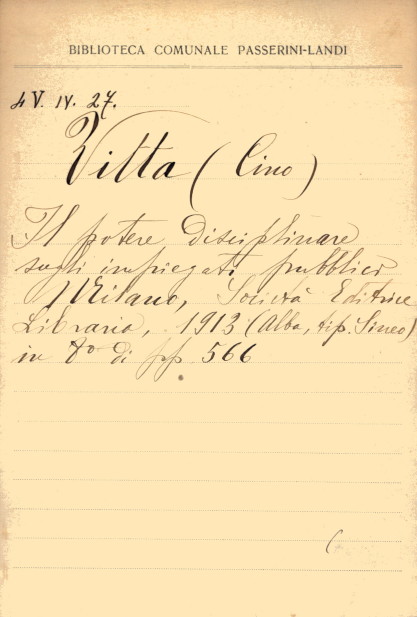 BIBLIOTECA COMUNALE PASSERINI-LANDI
4 V. IV. 27.
Vitta (Cino)
Il potere disciplinare
sugli impiegati pubblici
Milano, Società Editrice
Libraria, 1913 (Alba, tip. Sineo)
in 8º di pp 566